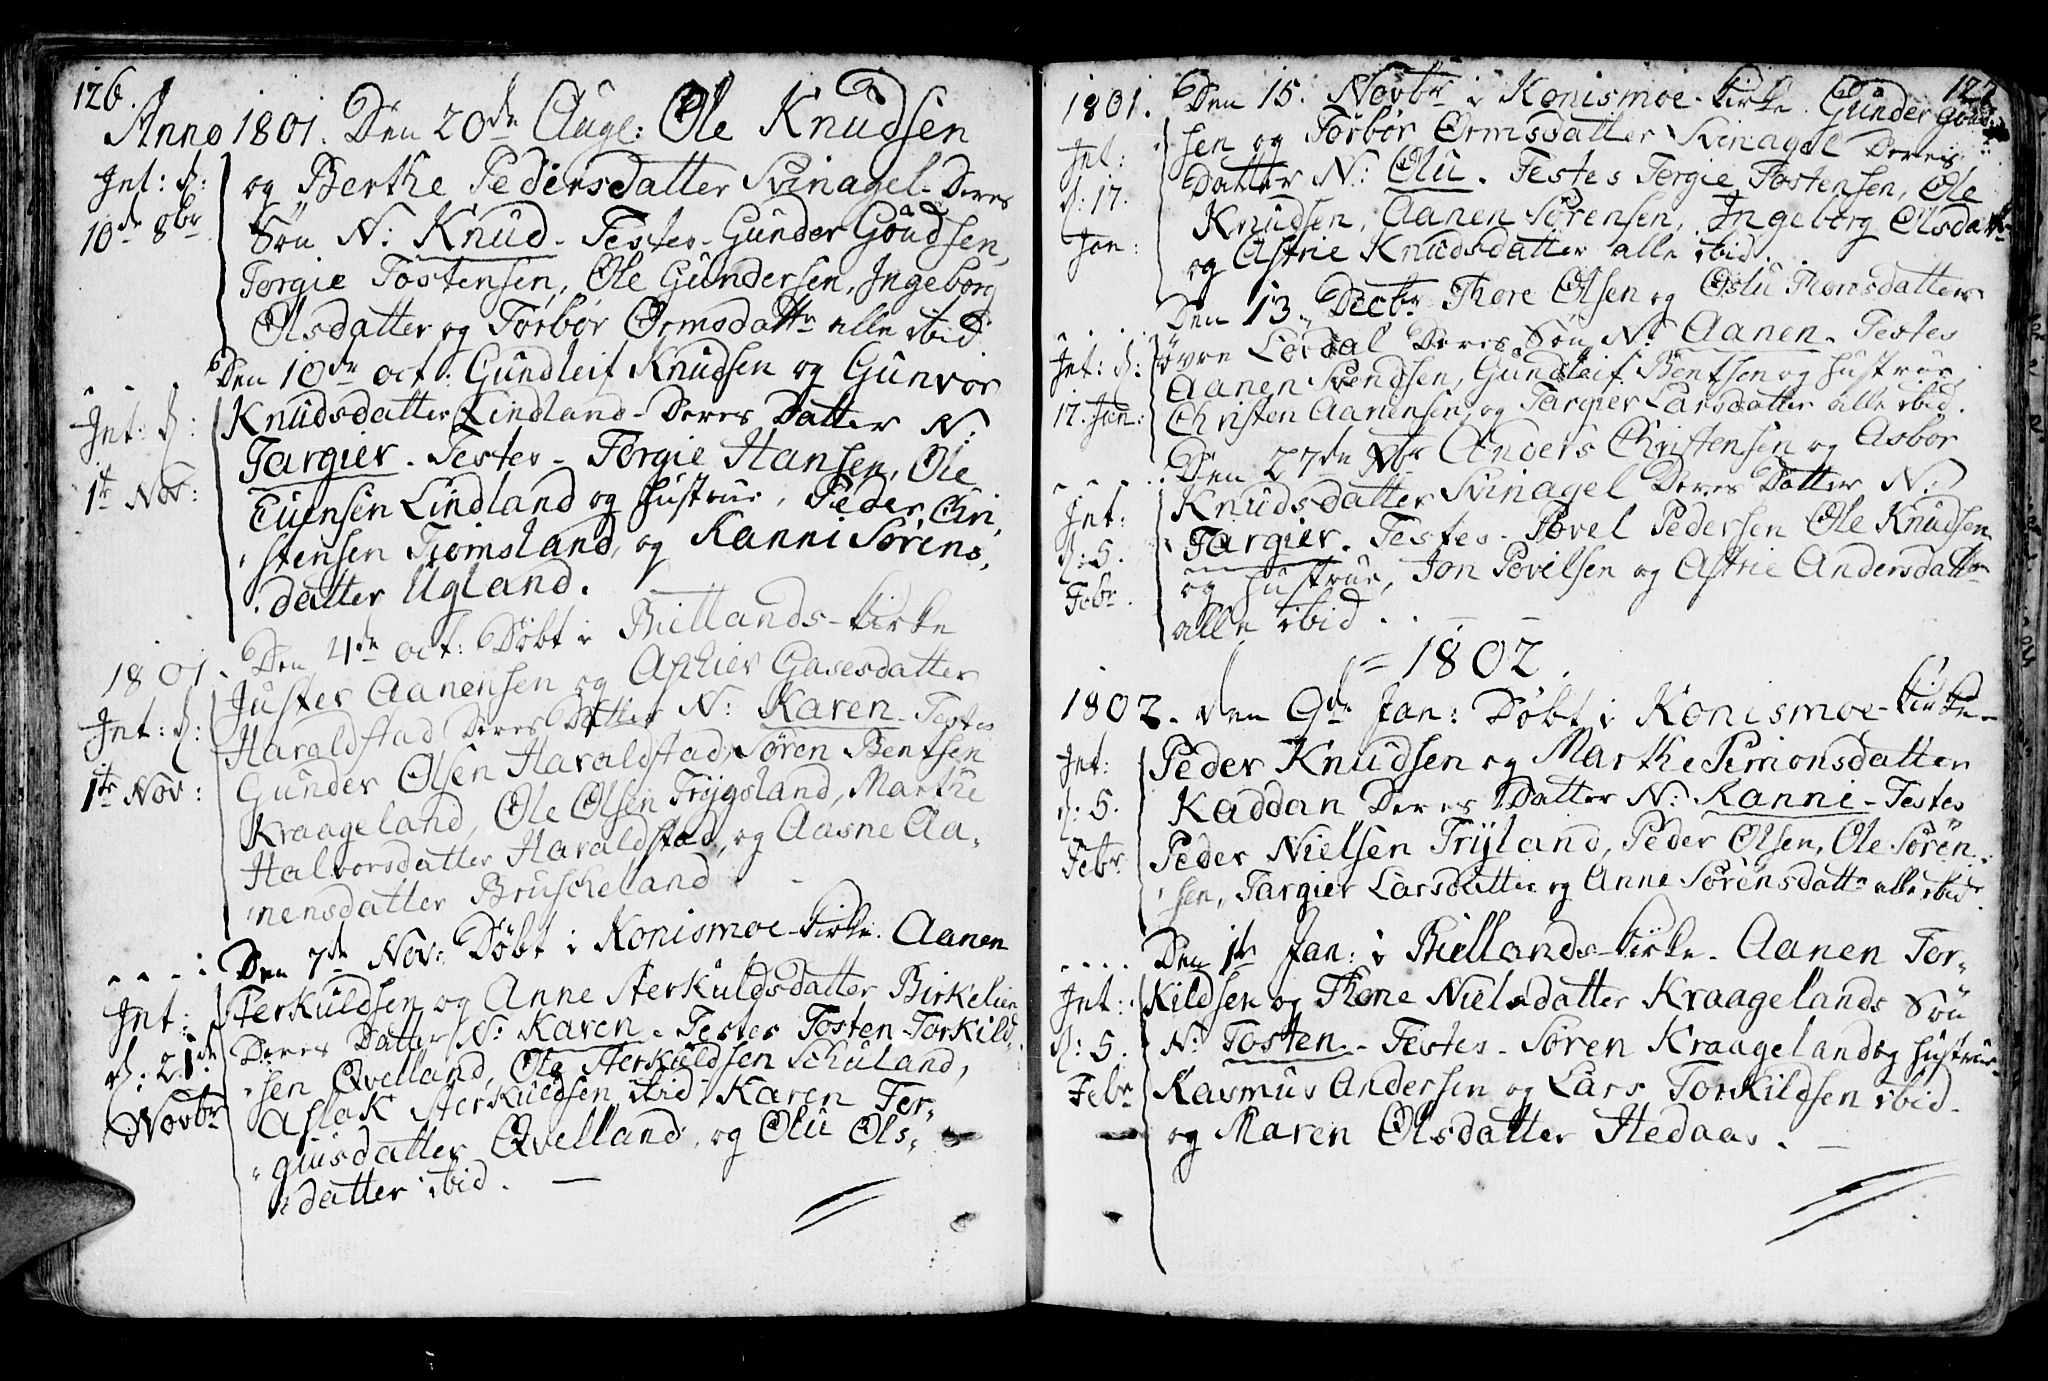 126.
Anno 1801. Den 20de Augl: Ole Knudsen
Int: d:
10de 8br
og Berthe Pedersdatter Svinagel. Deres
Sön N: Knud. Testes. Gunder Göudsen,
Torgie Tostensen, Ole Gundersen, Ingeborg
Olsdatter og Torbör Ormsdattr alle ibid.
Den 10de oct: Gundleif Knudsen og Gunvor
Int: d:
1te Nov:
Knudsdatter Lindland. Deres Datter N:
Targier. Testes. Torgie Hansen, Ole
Evensen Lindland og hustrue, Peder Chri,
stensen Tiomsland, og Ranni Sörens,
datter Ugland.
Den 4de oct: Döbt i Biellands-kirke
1801.
Juster Aanensen og Aschier Gasesdatter
Int: d:
1te Nov:
Haraldstad Deres Datter N: Karen. Testes
Gunder Olsen Haraldstad, Sören Bentsen
Kraageland, Ole Olsen Trygsland, Marthe
Halvorsdatter Haraldstad, og Aasne Aa,
nensdatter Bruscheland.
Den 7de Nov: Döbt i Konismoe-kirke. Aanen
Int:
d: 21de
Novbr
Sterkuldsen og Anne Sterkuldsdatter Birkelien
Deres Datter N: Karen. Testes Tosten Torkild,
sen Qvelland, Ole Sterkuldsen Schuland,
Aslak Sterkuldsen ibid. Karen Ter,
giusdatter Qvelland, og Olu Ols,
datter ibid.
127
1801. Den 15. Novbr i Konismoe-kirke. Gunder Göud:
Int:
d: 17.
Jan:
sen og Torbör Ormsdatter Svinagel Deres
Datter N: Olu. Testes Torgie Tostensen, Ole
Knudsen, Aanen Sörensen, Ingeborg Olsdattr
og Astrie Knudsdatter alle ibid.
Den 13. Decbr Thore Olsen og Oslu Thomsdatter
Int: d:
17. Jan:
övre Lördal Deres Sön N: Aanen. Testes
Aanen Svendsen, Gundleif Bentsen og hustrue,
Christen Aanensen, og Targier Larsdatter alle ibid.
Den 27de Xbr Anders Christensen og Asbor
Int:
d: 5.
Febr.
Knudsdatter Svinagel Deres Datter N:
Targier. Testes. Povel Pedersen Ole Knudsen
og hustrue, Jon Povelsen og Astrie Andersdattr
alle ibid.
= 1802.
1802. den 9de Jan: Döbt i Konismoe-kirke.
Int:
d: 5.
Febr
Peder Knudsen og Marthe Simonsdatter
Kaddan Deres Datter N: Ranni. Testes
Peder Nielsen Tryland, Peder Olsen, Ole Sören,
sen, Targier Larsdatter og Anne Sörensdattr alle ibid.
Den 1te Jan: i Biellands-kirke. Aanen Tor,
Int:
d: 5.
Febr
kildsen og Thone Nielsdatter Kraagelands Sön
N: Tosten. Testes. Sören Kraageland og hustrue,
Rasmus Andersen og Lars Torkildsen ibid.
og Maren Olsdatter Stedaas.